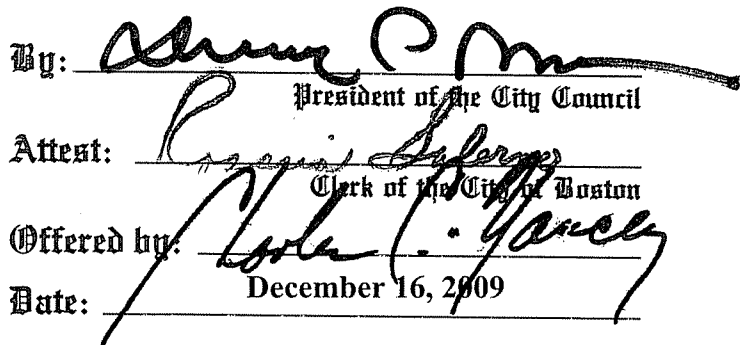 By:
President of the City Council
Attest: Rosaria Salerno
Clerk of the City of Boston
Offered by: Charles C. Yancey
Date: December 16, 2009